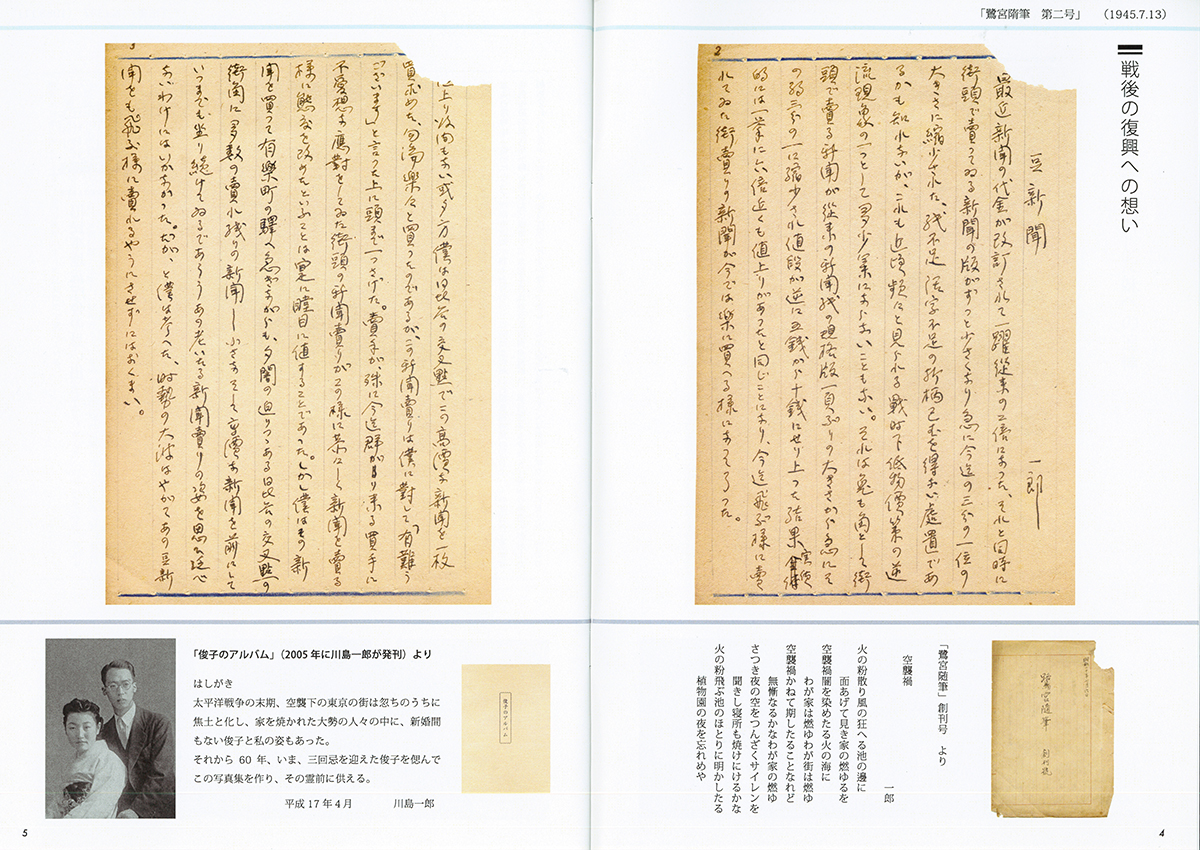 「鷺宮隨筆　第二号」　（1945.7.13）
戦後の復興への想い
2
豆新聞
一郎
最近新聞の代金が改訂されて一躍從来の二倍になった、それと同時に
街頭で売ってゐる新聞の版がずっと小さくなり急に今迄の三分の一位の
大きさに縮少された。紙不足活字不足の折柄已むを得ない處置であ
るかも知れないが、これも近頃頻々と見られる戦時下低物價策の逆
流現象の一つとして多少笑にならないこともない。それは兎も角として街
頭で賣る新聞が從来の新聞紙の規格版一頁ぶりの大きさから急にそ
の約三分の一に縮少され値段が逆に五銭から十銭にせり上った結果実質
的には一挙に六倍近くも値上りがあったと同じことになり、今迄飛ぶ様に賣
れてゐた街賣りの新聞が今では楽に買へる様になってしまった。
「鷺宮随筆」創刊号　より
空襲禍
一郎
火の粉散り風の狂へる池の邊に
面あげて見き家の燃ゆるを
空襲禍闇を染めたる火の海に
わが家は燃ゆわが街は燃ゆ
空襲禍かねて期したることなれど
無慚なるかなわが家の燃ゆ
さつき夜の空をつんざくサイレンを
聞きし寝所も焼けにけるかな
火の粉飛ぶ池のほとりに明かしたる
植物園の夜を忘れめや
鷺宮随筆　創刊號
4
3
上り後間もない或夕方僕は日比谷の交叉點でこの高價な新聞を一枚
買求めた、勿論楽々と買ったのであるが、この新聞賣りは僕に對して「有難う
ございます」と言った上に頭まで一つさげた。賣手が、殊に今迄群がり来る買手に
不愛想な應對をしてゐた街頭の新聞賣りがこの様に 新聞を賣る
様に態度を改めたといふことは寔に瞠目に値することであった。しかし僕はその新
聞を買って有樂町の驛へ急ぎながらも、夕闇の迫りつゝある日比谷の交叉點の
街角に多数の賣れ残りの新聞――小さなそして高價な新聞を前にして
いつまでも坐り続けてゐるであらうあの老いたる新聞賣りの姿を思ひ泛べ
ないわけにはいかなかった。だが、と僕は考へた、時勢の大波はやがてあの豆新
聞をも飛ぶ様に賣れるやうにさせずにはおくまい。
「俊子のアルバム」（2005 年に川島一郎が発刊）より
はしがき
太平洋戦争の末期、空襲下の東京の街は忽ちのうちに
焦土と化し、家を焼かれた大勢の人々の中に、新婚間
もない俊子と私の姿もあった。
それから 60 年、いま、三回忌を迎えた俊子を偲んで
この写真集を作り、その霊前に供える。
平成 17 年 4 月　　　川島一郎
俊子のアルバム
5